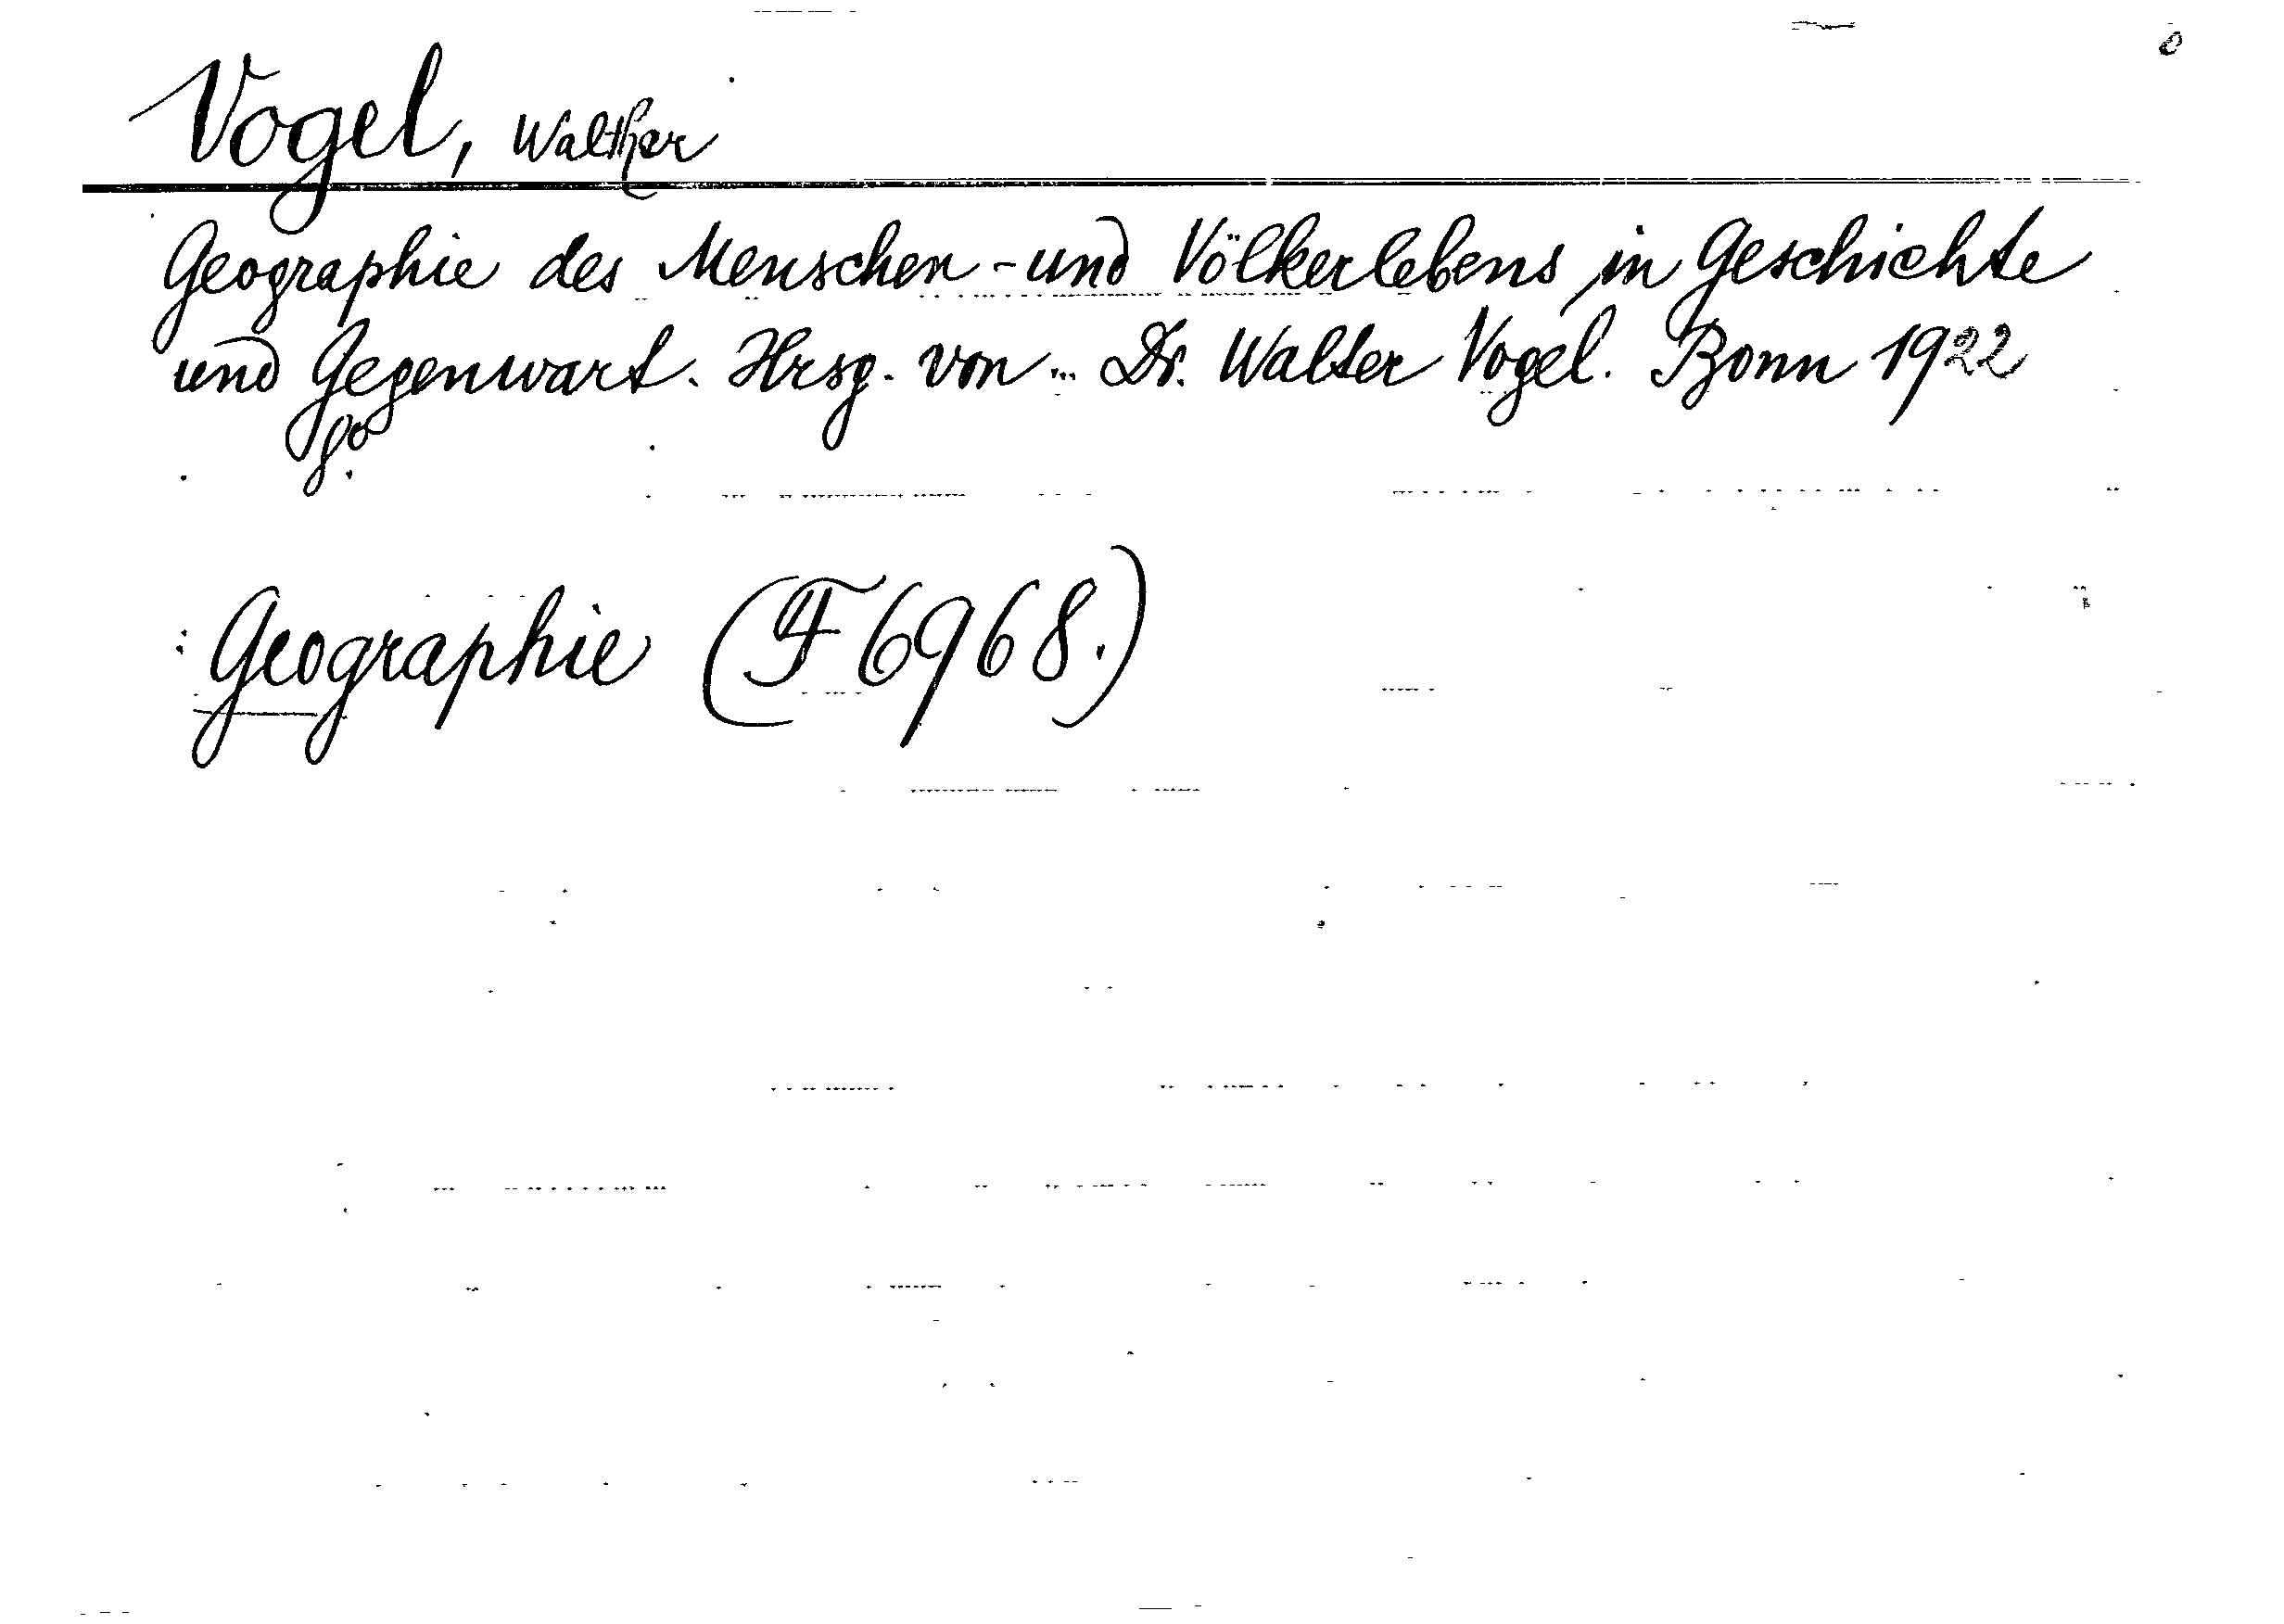 Vogel, Walther
Geographie des Menschen- und Völkerlebens in Geschichte
und Gegenwart. Hrsg. von... Dr. Walter Vogel. Bonn 1922
8°.
Geographie (F 6968.)